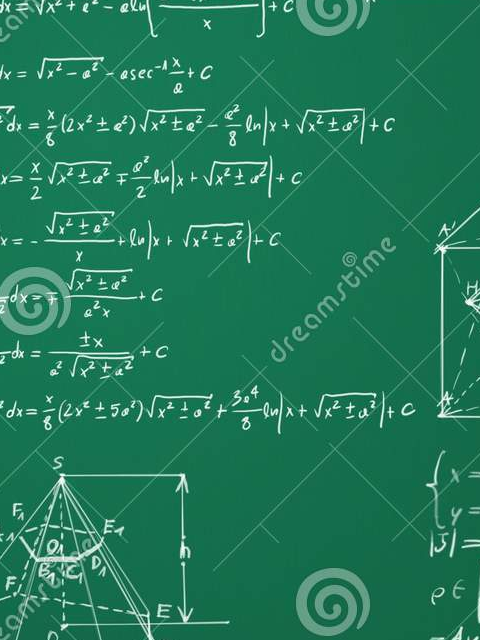 dx = √(x² + a²) - a ln|[ / x ]| + C
dx = √(x² - a²) - a sec⁻¹ x/a + C
²dx = x/8 (2x² ± a²) √(x² ± a²) - a²/8 ln|x + √(x² ± a²)| + C
x = x/2 √(x² ± a²) ∓ a²/2 ln|x + √(x² ± a²)| + C
x = - √(x² ± a²)/x + ln|x + √(x² ± a²)| + C
dx = ∓ √(x² ± a²)/a²x + C
dx = ±x/(a² √(x² ± a²)) + C
²dx = x/8 (2x² ± 5a²) √(x² ± a²) + 3a⁴/8 ln|x + √(x² ± a²)| + C
A'
H
A
S
F₁
E₁
O₁
B₁ C₁ D₁
F
E
h
x =
y =
|J| =
ρ ∈
dreamstime